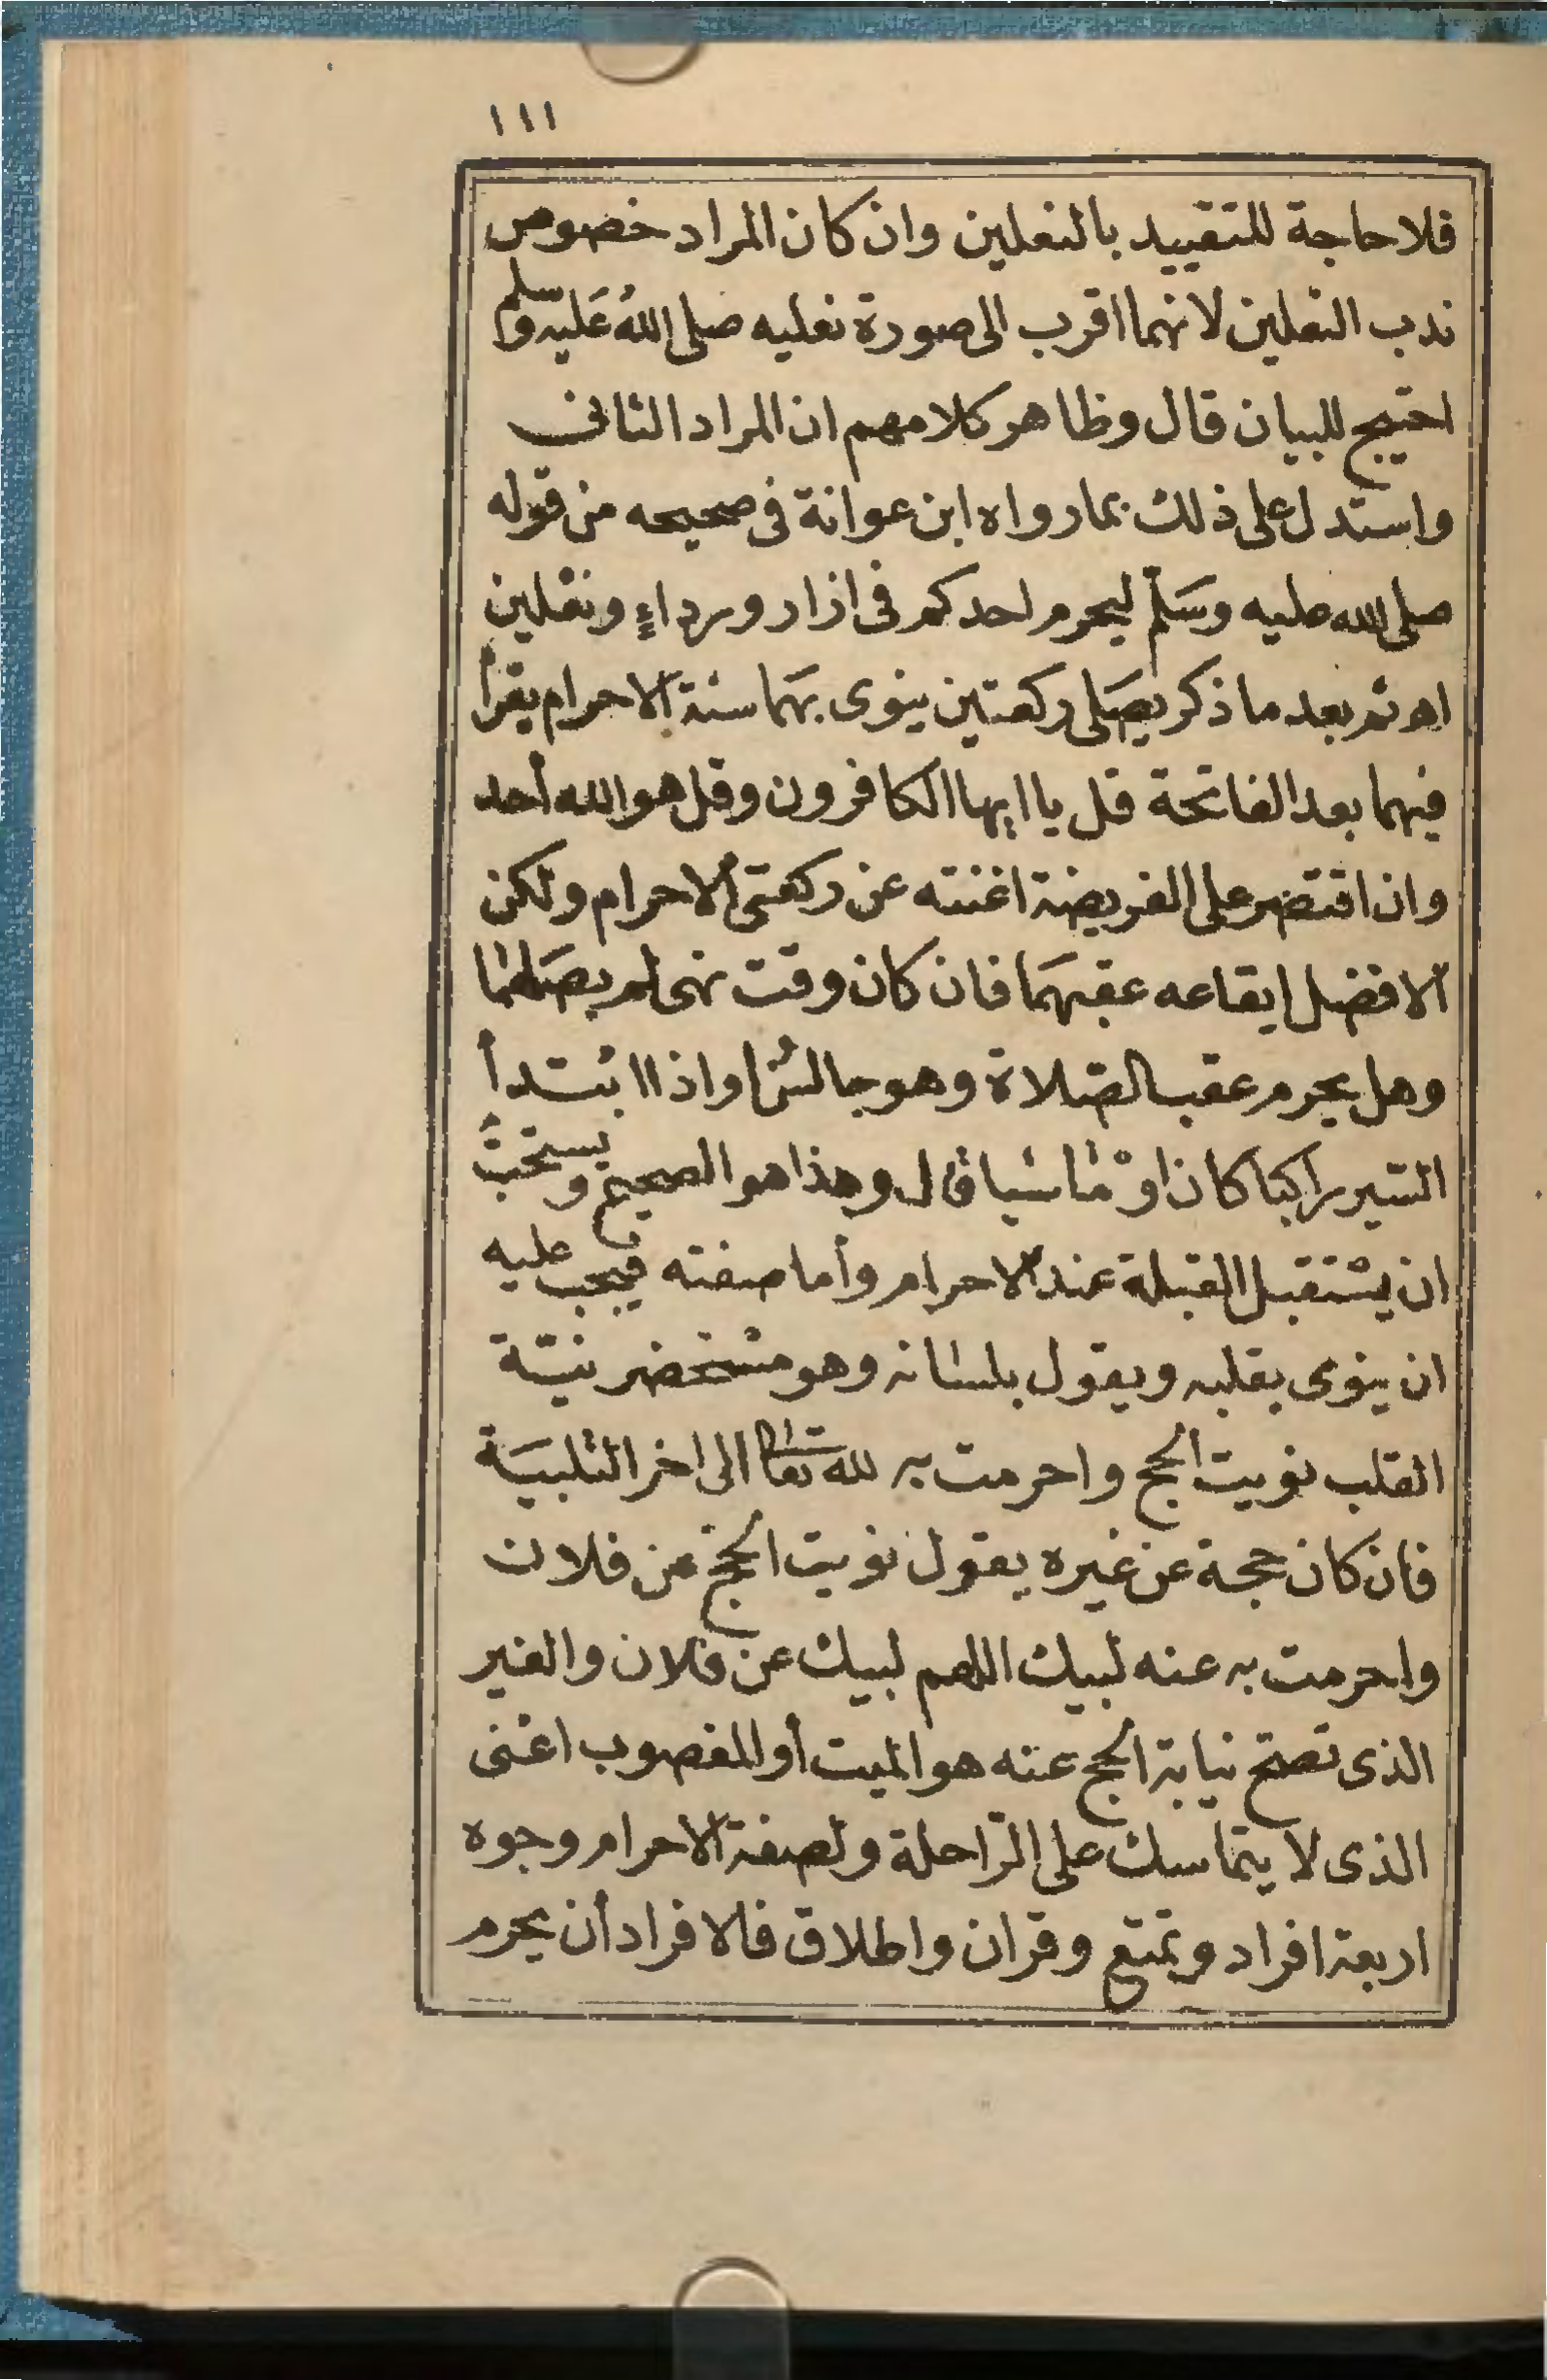 ١١١
فلا حاجة للتقييد بالنعلين وان كان المراد خصوص
ندب النعلين لانهما اقرب الى صورة نعليه صلى الله عليه وسلم
احتيج للبيان قال وظاهر كلامهم ان المراد الثانى
واستدل على ذلك بما رواه ابن عوانة فى صحيحه من قوله
صلى الله عليه وسلم ليحرم احدكم فى ازار ورداءٍ ونعلين
اهـ ثم بعد ما ذكر يصلى ركعتين ينوى بهما سنة الاحرام يقرأ
فيهما بعد الفاتحة قل يا ايها الكافرون وقل هو الله أحد
وان اقتصر على الفريضة اغنته عن ركعتى الاحرام ولكن
الافضل ايقاعه عقبهما فان كان وقت نهى لم يصلهما
وهل يحرم عقب الصّلاة وهو جالس او اذا ابتدأ
السّير راكبا كان او ماشيا قال وهذا هو الصحيح ويستحبّ
ان يستقبل القبلة عند الاحرام وأما صفته فيجب عليه
ان ينوى بقلبه ويقول بلسانه وهو مستحضر نيّة
القلب نويت الحج واحرمت به لله تعالى الى اخر التلبيَة
فان كان حجة عن غيره يقول نويت الحجّ عن فلان
واحرمت به عنه لبيك اللهم لبيك عن فلان والغير
الذى تصحّ نيابة الحج عنه هو الميت أو المغصوب اعنى
الذى لا يتماسك على الرّاحلة ولصفة الاحرام وجوه
اربعة افراد وتمتع وقران واطلاق فالافراد أن يحرم